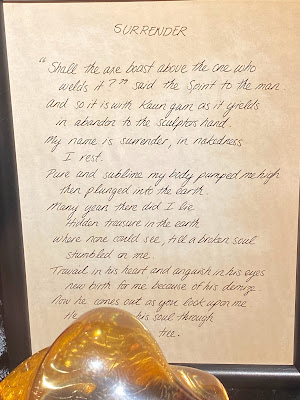 SURRENDER
"Shall the axe boast above the one who
welds it?" said the Spirit to the man
and so it is with Kauri gum as it yields
in abandon to the sculptors hand.
My name is surrender, in nakedness
I rest.
Pure and sublime my body pumped me high
then plunged into the earth.
Many years there did I lie
Hidden treasure in the earth
where none could see, till a broken soul
stumbled on me.
Travail in his heart and anguish in his eyes
new birth for me because of his demize.
Now he comes out as you look upon me
He his soul through
tree.